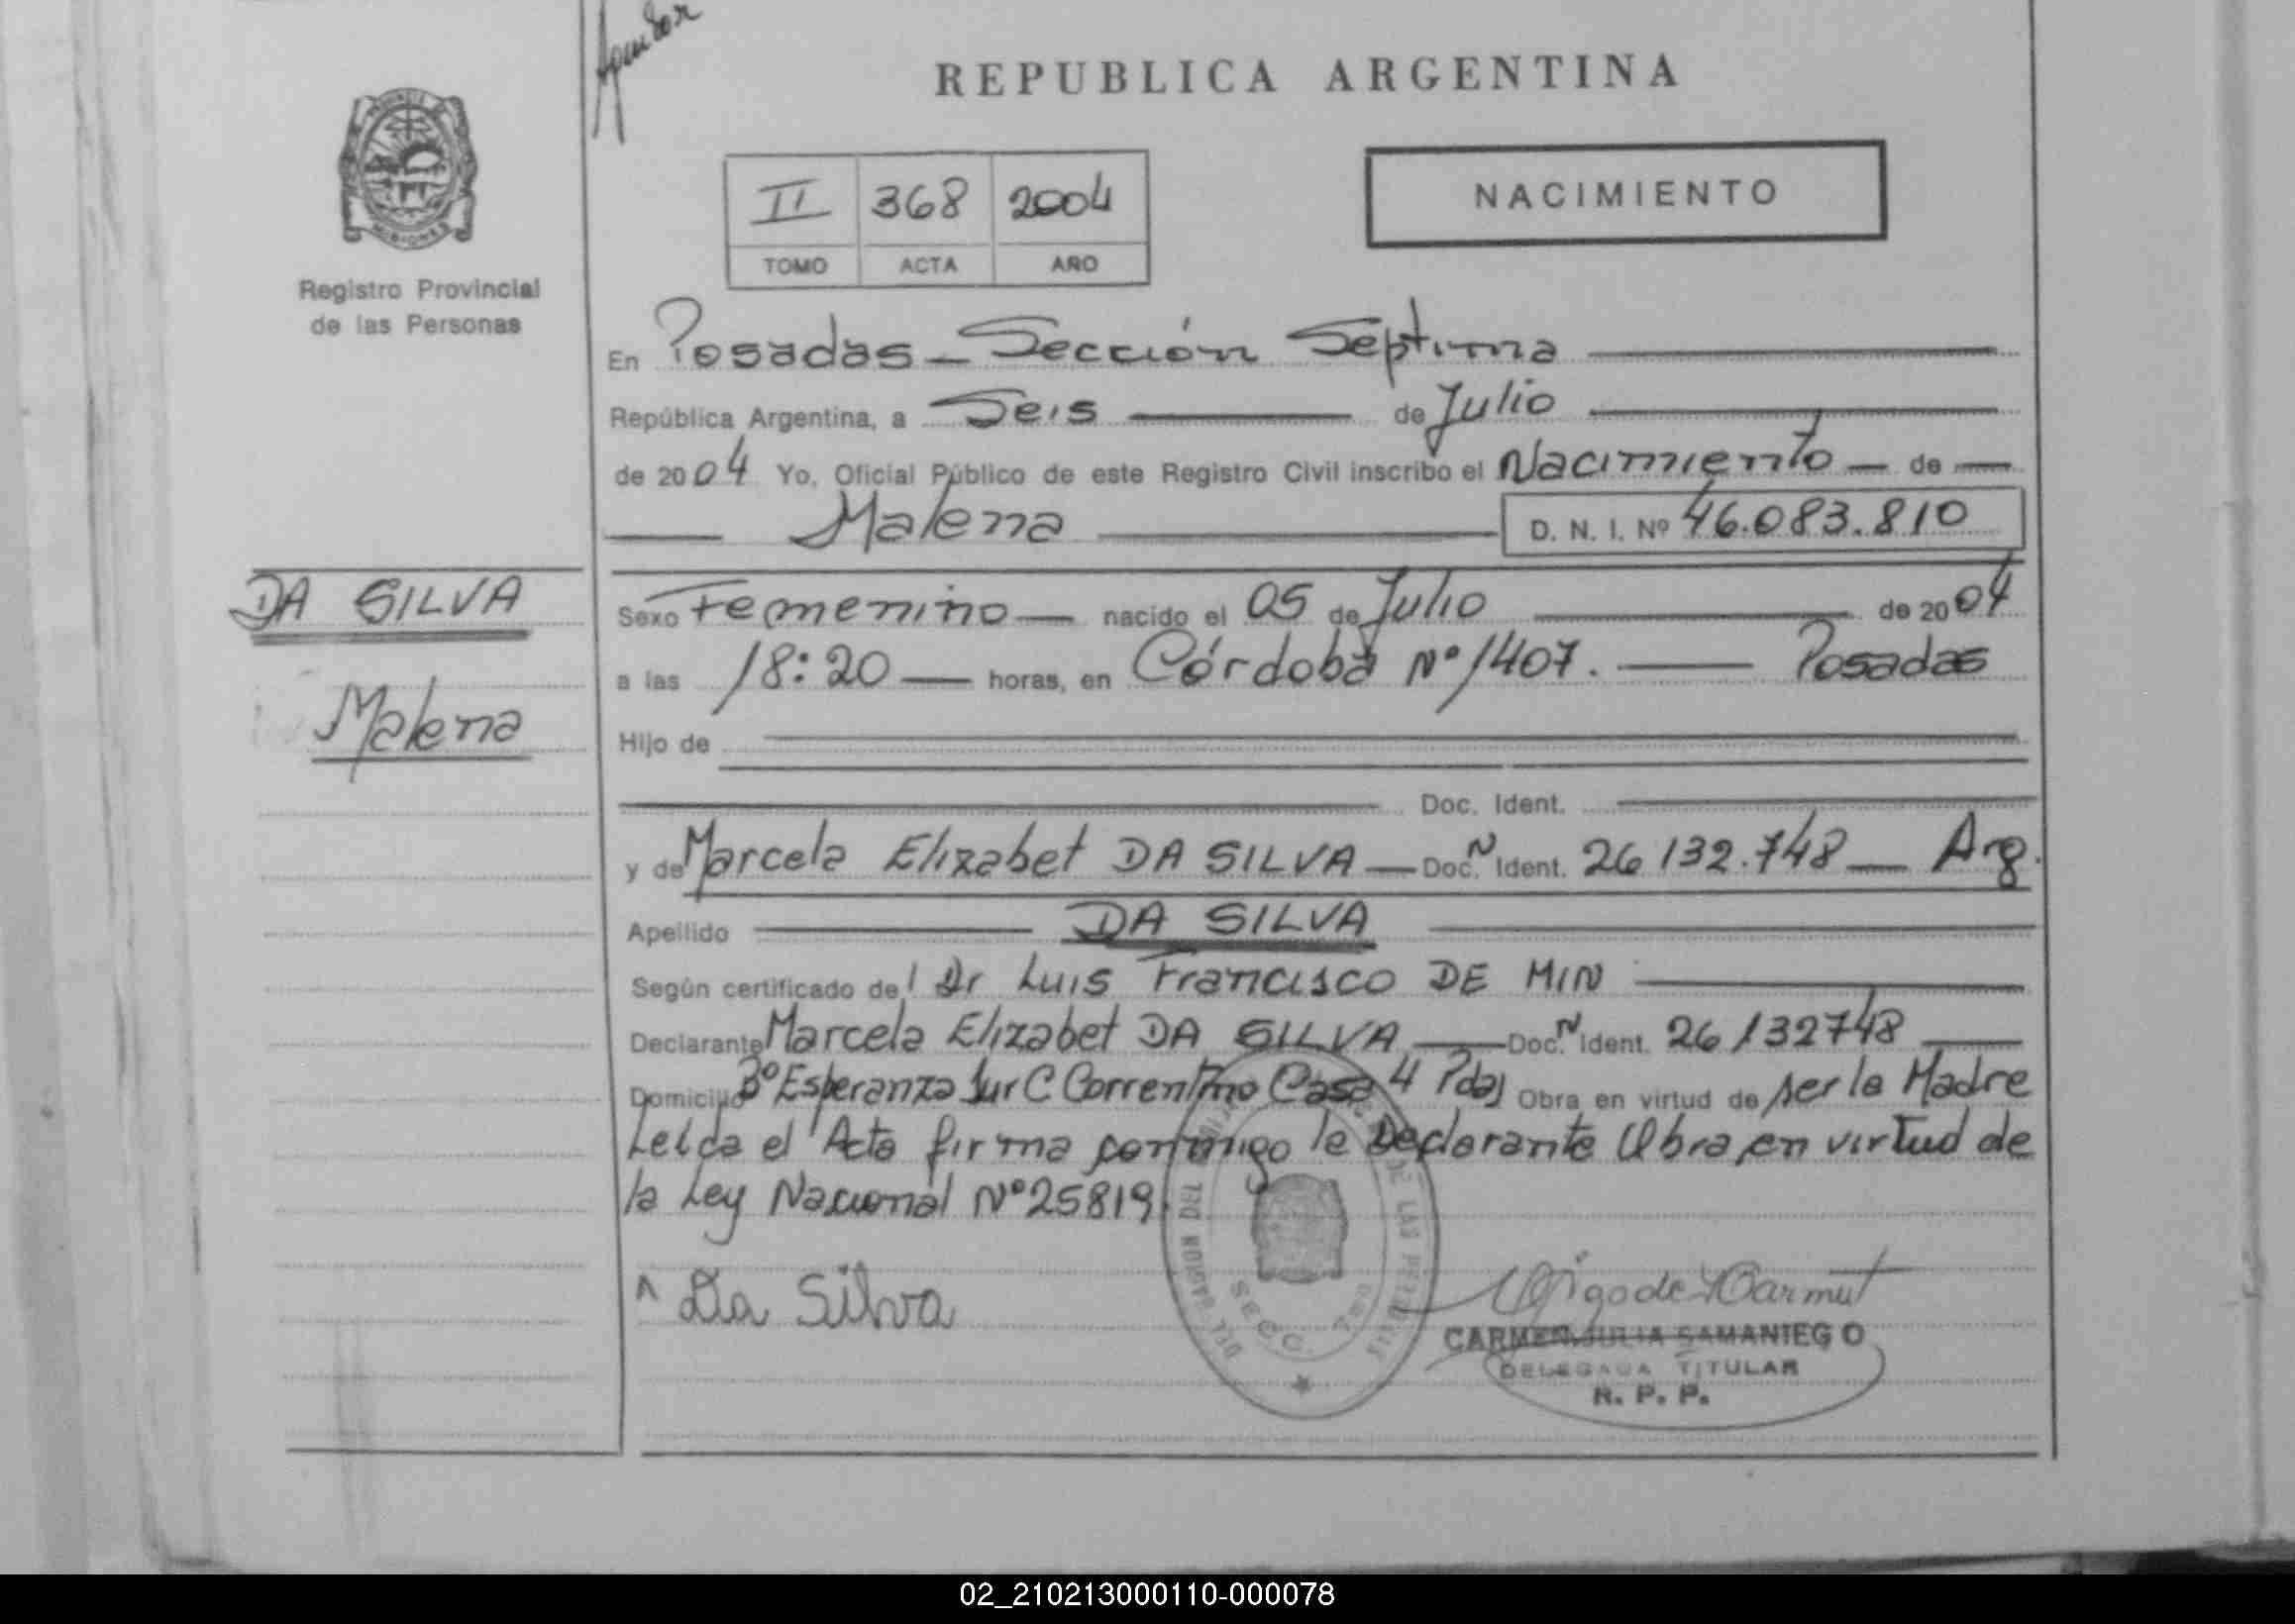 REPUBLICA ARGENTINA
II 368 2004
TOMO ACTA AÑO
NACIMIENTO
MISIONES
Registro Provincial
de las Personas
En Posadas - Sección Séptima
República Argentina, a Seis de Julio
de 2004 Yo, Oficial Público de este Registro Civil inscribo el Nacimiento de
Malena D. N. I. Nº 46.083.810
DA SILVA
Malena
Sexo Femenino nacido el 05 de Julio de 2004
a las 18:20 horas, en Córdoba Nº 1407. Posadas
Hijo de
Doc. Ident.
y de Marcela Elizabet DA SILVA Doc. N Ident. 26 132.748 Arg.
Apellido DA SILVA
Según certificado del Dr Luis Francisco DE MIN
Declarante Marcela Elizabet DA SILVA Doc. N Ident. 26132748
Domicilio Bº Esperanza Sur C Correntino Casa 4 Pdas Obra en virtud de ser la Madre
Leída el Acta firma conmigo la Declarante Obra en virtud de
la Ley Nacional Nº 25819
DE LAS
SECC.
Da Silva
CARMEN JULIA SAMANIEGO
DELEGADA TITULAR
R. P. P.
02_210213000110-000078